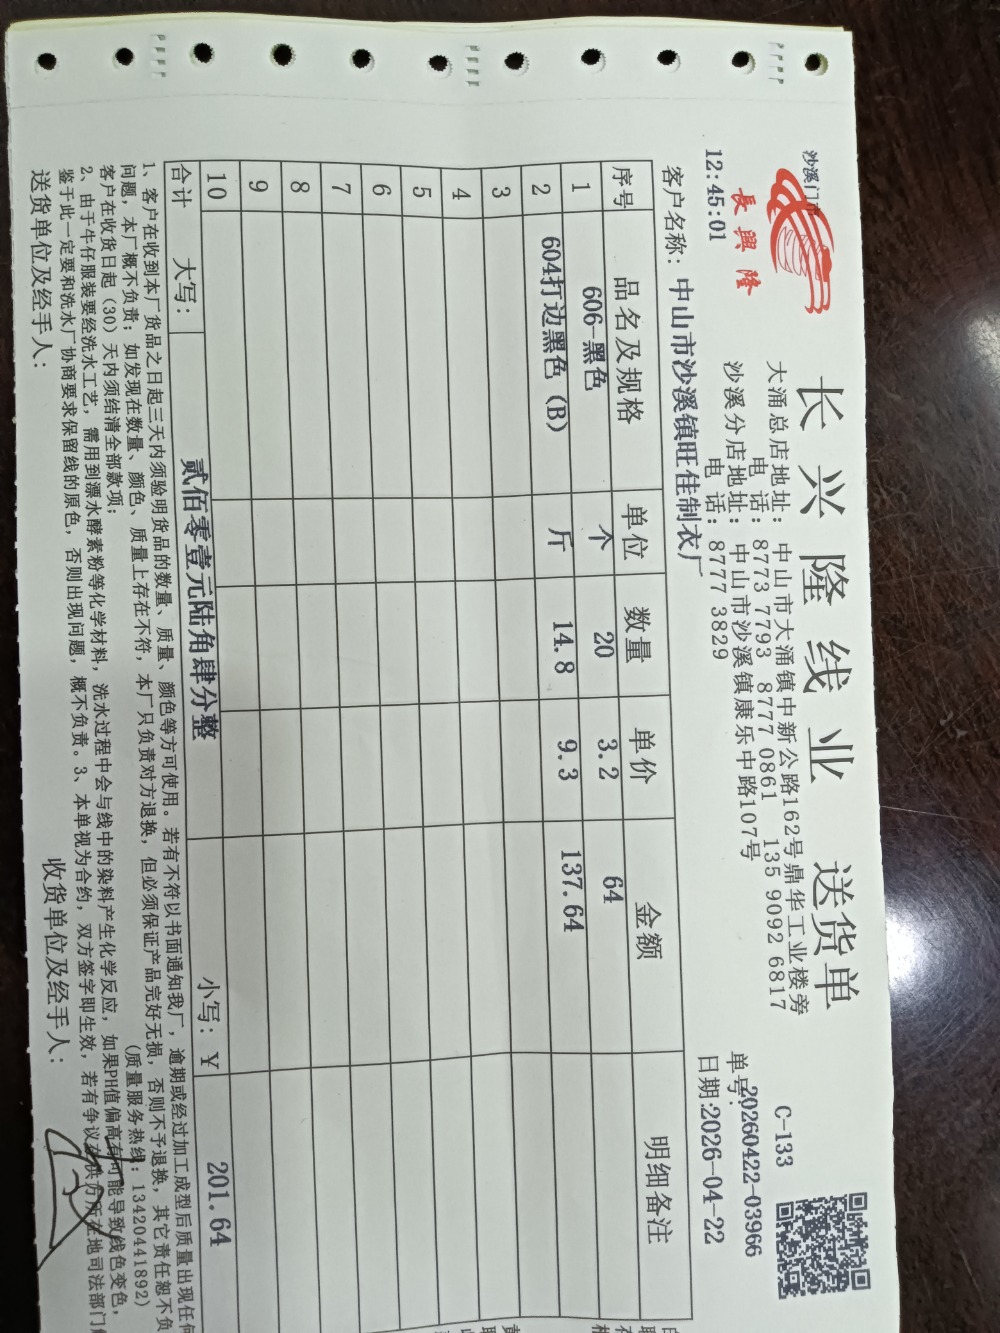 沙溪门市
長興隆
12:45:01
长兴隆线业 送货单
大涌总店地址: 中山市大涌镇中新公路162号鼎华工业楼旁
电 话: 8773 7793 8777 0861 135 9092 6817
沙溪分店地址: 中山市沙溪镇康乐中路107号
电 话: 8777 3829
C-133
单号:20260422-03966
客户名称: 中山市沙溪镇旺佳制衣厂
日期:2026-04-22
序号 品名及规格 单位 数量 单价 金额 明细备注
1 606-黑色 个 20 3.2 64
2 604打边黑色 (B) 斤 14.8 9.3 137.64
3
4
5
6
7
8
9
10
合计 大写: 贰佰零壹元陆角肆分整 小写: ¥ 201.64
1、客户在收到本厂货品之日起三天内须验明货品的数量、质量、颜色等方可使用。若有不符以书面通知我厂, 逾期或经过加工成型后质量出现任何
问题, 本厂概不负责; 如发现在数量、颜色、质量上存在不符, 本厂只负责对方退换, 但必须保证产品完好无损, 否则不予退换, 其它责任恕不负
客户在收货日起 (30) 天内须结清全部款项; (质量服务热线: 13420441892)
2、由于牛仔服装要经洗水工艺, 需用到漂水酵素粉等化学材料, 洗水过程中会与线中的染料产生化学反应, 如果PH值偏高有可能导致线色变色,
鉴于此一定要和洗水厂协商要求保留线的原色, 否则出现问题, 概不负责。3、本单视为合约, 双方签字即生效, 若有争议 供方所在地司法部门
送货单位及经手人: 收货单位及经手人: